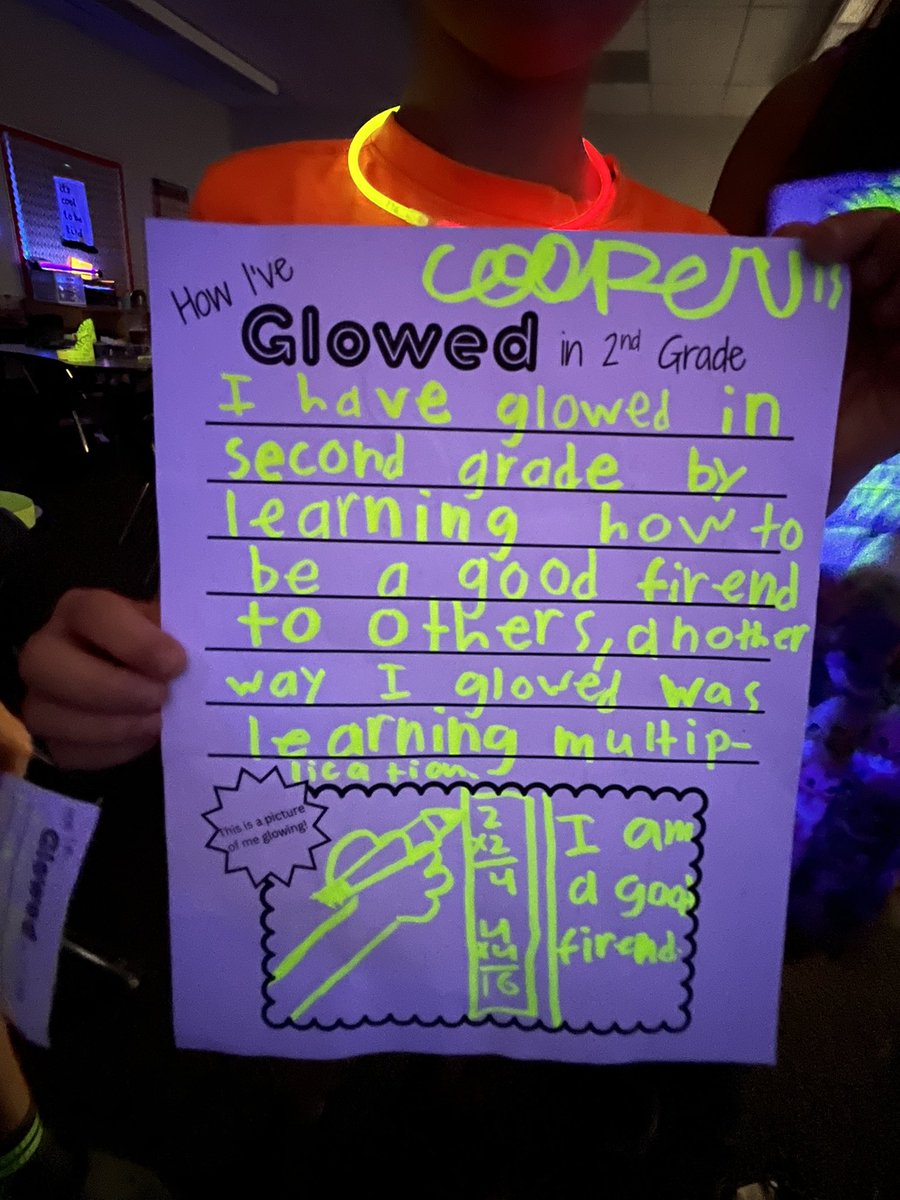 it's
cool
to be
kind
COOPER
How I've
Glowed in 2nd Grade
I have glowed in
second grade by
learning how to
be a good firend
to others, another
way I glowed was
learning multip-
lication.
This is a picture
of me glowing!
2
x2
4
4
x4
16
I am
a good
firend.
Glowed